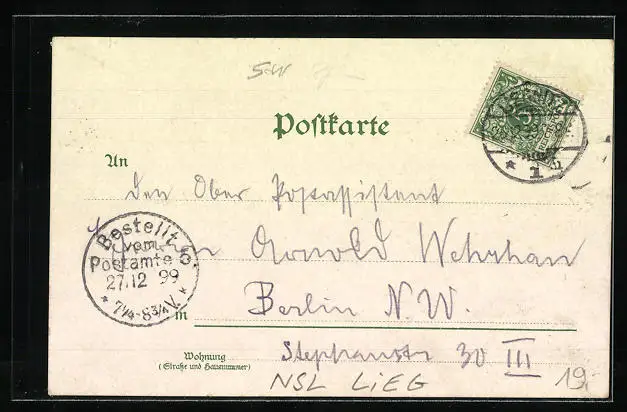 5-W
Postkarte
An
den Ober Postassistent
Herrn Arnold Wehrhan
in Berlin N.W.
Wohnung
(Straße und Hausnummer)
Stephanstr 30 III
NSL LiEG
19,-
Bestellt
vom
Postamte
27.12 99
* 7¼-8¾V. *
* 1